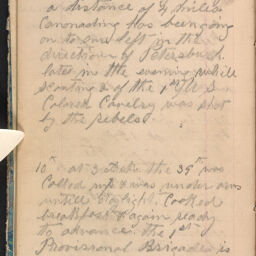 a distance of 4 miles
Canonading has been going
on to our left in the
direction of Petersburg.
later in the evening while
scouting 2 of the 1st U.S.
Colored Cavelry was shot
by the rebels.
10th at 3 Oclk the 39th was
Called up & was under arms
untill daylight. Cooked
breakfast & again ready
to advance. the 1st
Provisional Brigade is